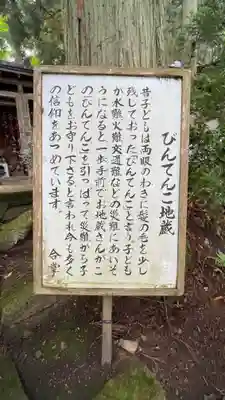 びんてんこ地蔵
昔子どもは両眼のわきに髪の毛を少し
残しておったびんてんこと言う子ども
が水難火難交通難などの災難にあいそ
うになると一歩手前でお地蔵さんがこ
のびんてんこを引っぱって災難から子
どもをお守り下さると言われ今も多く
の信仰をあつめています
合掌